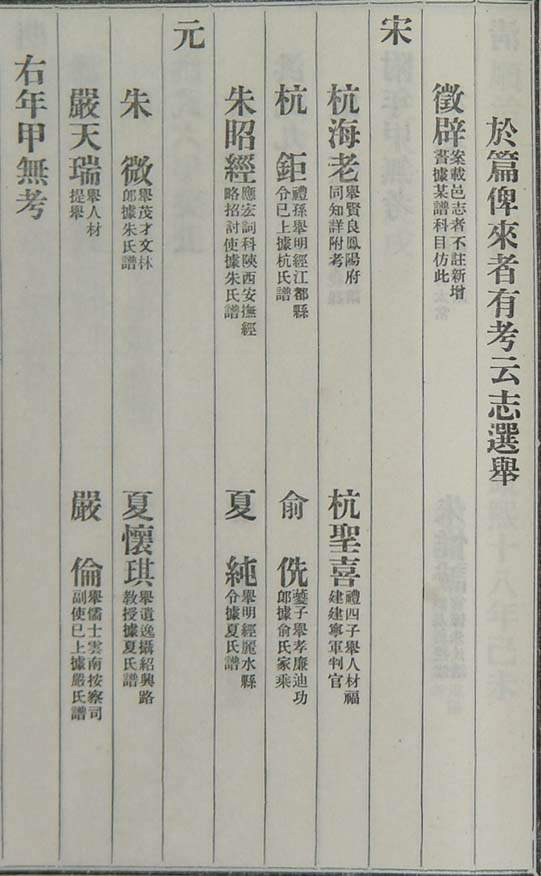 於篇俾來者有考云志選舉
徵辟
案載邑志者不註新增
書據某譜科目仿此
宋
杭海老
舉賢良鳳陽府
同知詳附考
杭聖喜
禮四子舉人材福
建建寧軍判官
杭鉅
禮孫舉明經江都縣
令已上據杭氏譜
俞侁
藝子舉孝廉迪功
郎據俞氏家乘
朱昭經
應宏詞科陝西安撫經
略招討使據朱氏譜
夏純
舉明經麗水縣
令據夏氏譜
元
朱微
舉茂才文林
郎據朱氏譜
夏懷琪
舉遺逸攝紹興路
教授據夏氏譜
嚴天瑞
舉人材
提舉
嚴倫
舉儒士雲南按察司
副使已上據嚴氏譜
右年甲無考